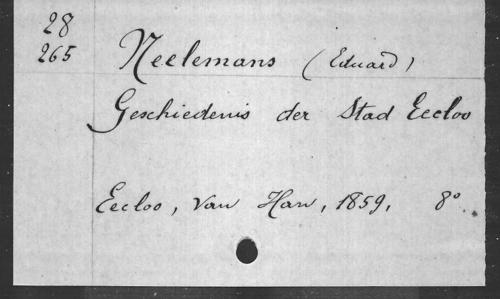 28
265
Neelemans (Eduard)
Geschiedenis der Stad Eecloo
Eecloo, Van Han, 1859, 8°.